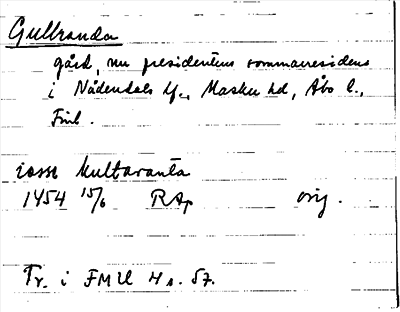 Gullranda
gård, nu presidentens sommarresidens
i Nådendals lf., Masku hd, Åbo l.,
Finl.
isse Kultaranta
1454 15/6 RAp orig.
Tr. i FMU 4 s. 57.